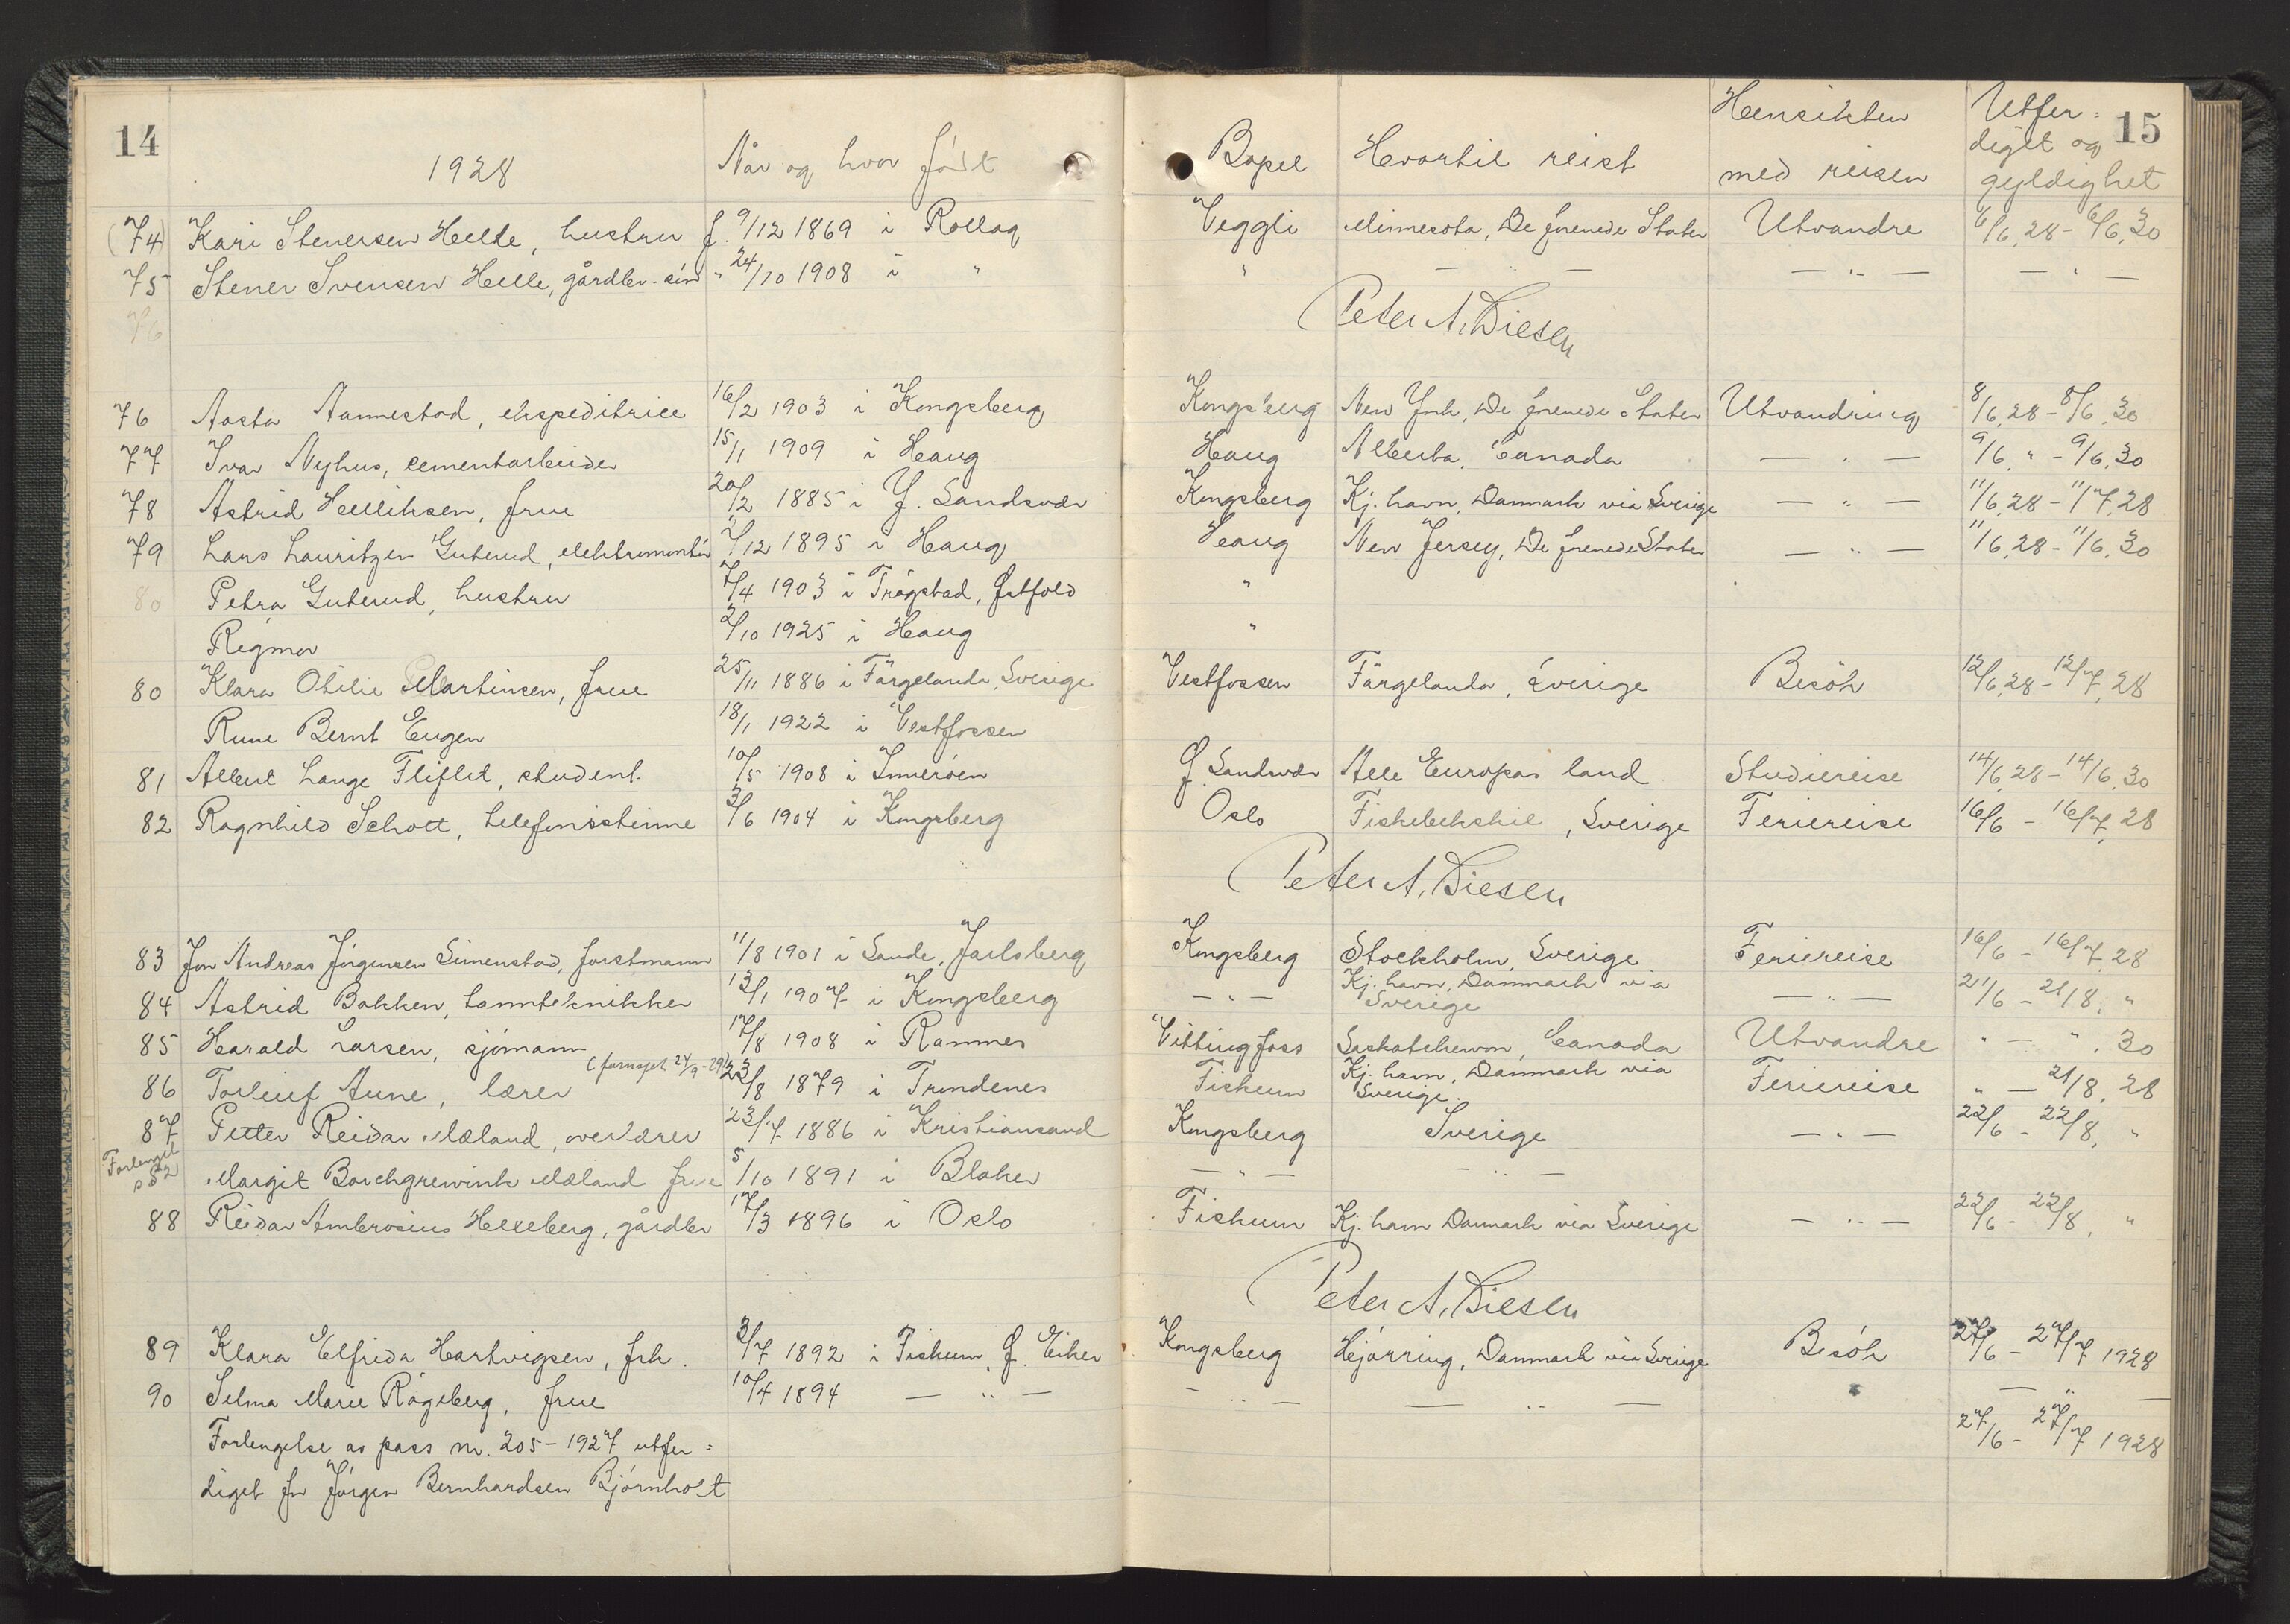 14
1928
Når og hvor født
Bopel
Hvortil reist
Hensikten
med reisen
Utfer=
diget og
gyldighet
15
(74) Kari Stenersen Helle, hustru f. 9/12 1869 i Rollag Veggli Minnesota, De forenede Stater Utvandre 6/6.28 - 6/6.30
75 Stener Svensen Helle, gårdbr. sön " 24/10 1908 i " " — " — — " — — " —
76
Peter A. Diesen
76 Aasta Aannestad, ekspeditrice 16/2 1903 i Kongsberg Kongsberg New York, De forenede Stater Utvandring 8/6.28 - 8/6.30
77 Ivar Nyhus, cementarbeider 15/1 1909 i Haug Haug Alberta, Canada — " — 9/6. " - 9/6.30
78 Astrid Helliksen, frue 20/2 1885 i Y. Sandsvær Kongsberg Kj.havn, Danmark via Sverige — " — 11/6.28 - 11/7.28
79 Lars Lauritzen Guterud, elektromontör /12 1895 i Haug Haug New Jersey, De forenede Stater — " — 11/6.28 - 11/6.30
80 Petra Guterud, hustru 7/4 1903 i Trögstad, Østfold "
Rigmor 2/10 1925 i Haug "
80 Klara Otilie Martinsen, frue 25/11 1886 i Färgelanda, Sverige Vestfossen Färgelanda, Sverige Besök 12/6.28 - 12/7.28
Rune Bernt Eugen 18/1 1922 i Vestfossen
81 Albert Lange Fliflet, student 10/5 1908 i Inneröen Ø. Sandsvær Alle Europas land Studiereise 14/6.28 - 14/6.30
82 Ragnhild Schott, telefonistinne 3/6 1904 i Kongsberg Oslo Fiskebekskil, Sverige Feriereise 16/6 - 16/7.28
Peter A. Diesen
83 Jon Andreas Jörgensen Simenstad, forstmann 11/8 1901 i Sande, Jarlsberg Kongsberg Stockholm, Sverige Feriereise 16/6 - 16/7.28
84 Astrid Bakken, tanntekniker 13/1 1907 i Kongsberg — " — Kj.havn, Danmark via
Sverige — " — 21/6 - 21/8. "
85 Harald Larsen, sjömann 17/8 1908 i Ramnes Vittingfoss Saskatchewan, Canada Utvandre " — " . 30
(fornyet 24/9-29)
86 Torleif Aune, lærer 23/8 1879 i Trondenes Fiskum Kj.havn, Danmark via
Sverige. Feriereise " — 21/8.28
87 Petter Reidar Mæland, overlærer 23/7 1886 i Kristiansand Kongsberg Sverige — " — 22/6 - 22/8. "
Forlenget
s 52
Margit Borchgrevink Mæland frue 5/10 1891 i Blaker — " — — " —
88 Reidar Ambrosius Hexeberg, gårdbr 17/3 1896 i Oslo Fiskum Kj.havn Danmark via Sverige — " — 22/6 - 22/8. "
Peter A. Diesen
89 Klara Elfrida Hartvigsen, frk. 3/7 1892 i Fiskum, Ø. Eiker Kongsberg Hjörring, Danmark via Sverige Besök 27/6 - 27/7 1928
90 Selma Marie Rågeberg, frue 10/4 1894 — " — - " — — " — " — " —
Forlengelse av pass nr. 205 - 1927 utfer= 27/6 - 27/7 1928
diget for Jörgen Bernhardsen Björnholt